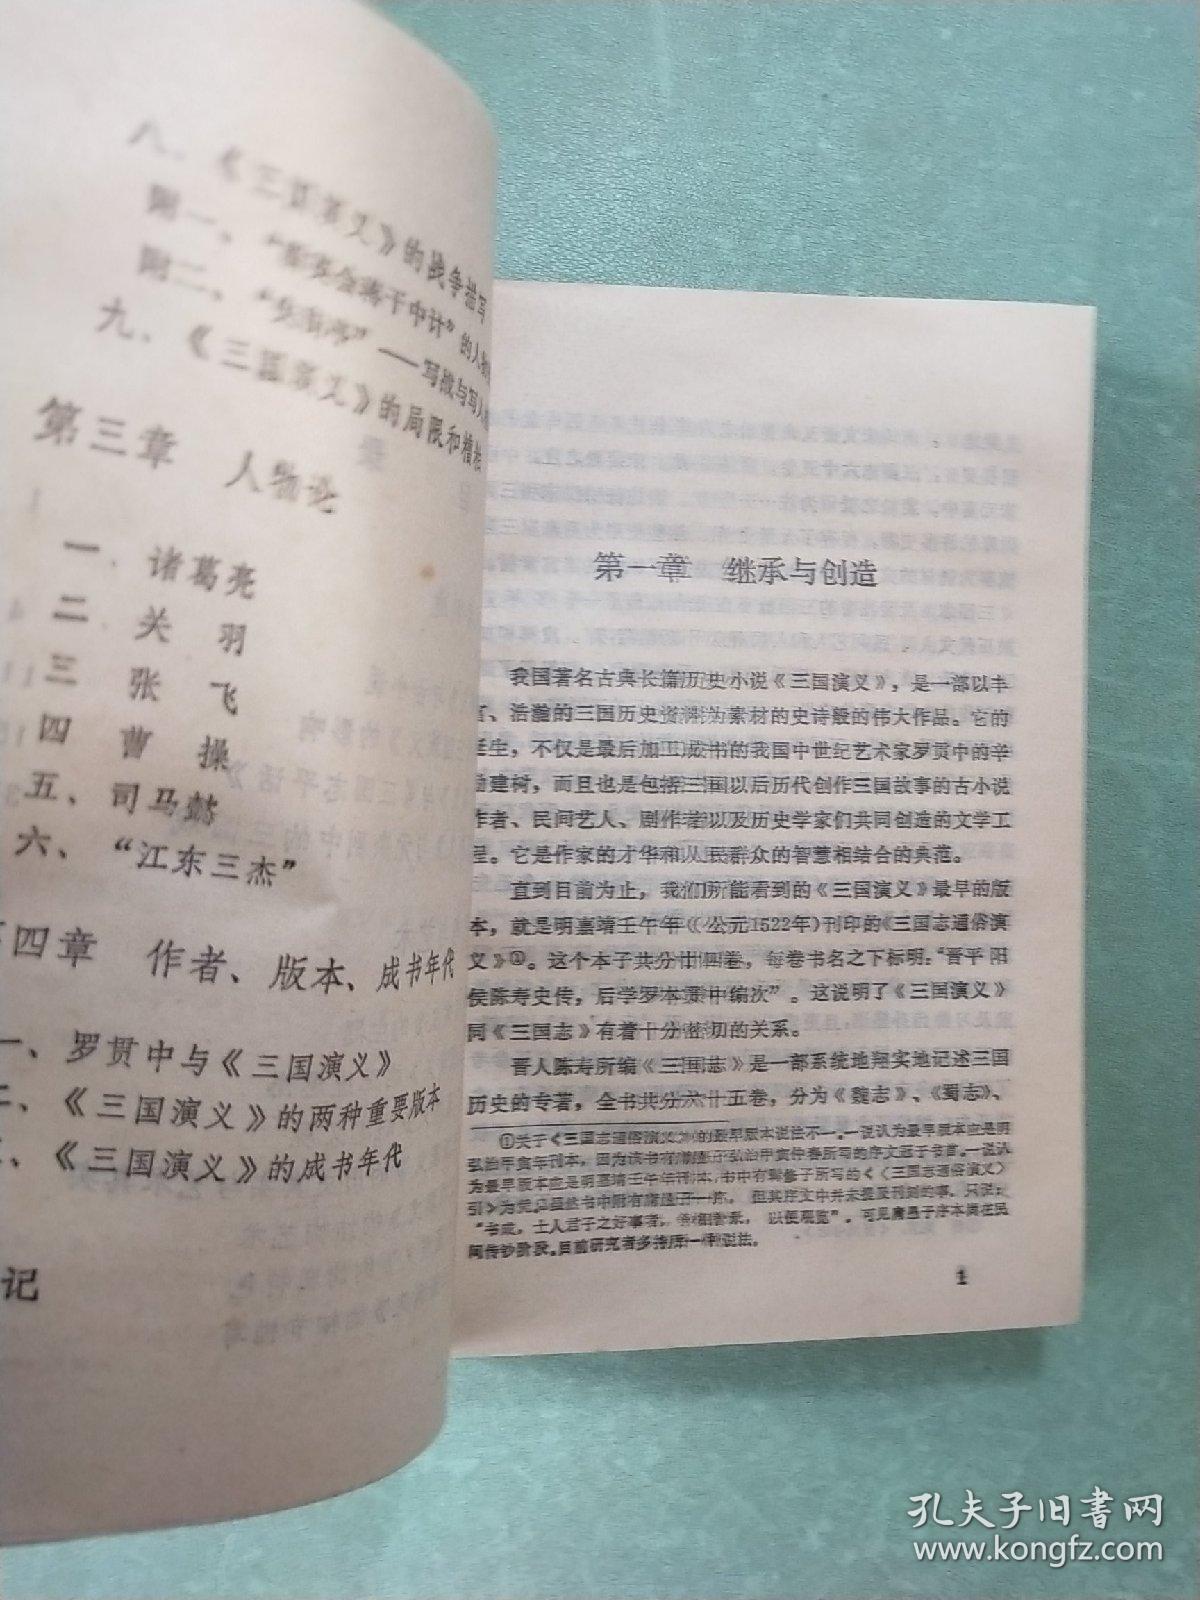 八、《三国演义》的战争描写
附一、“群英会蒋干中计”的人物
附二、“失街亭”——写战与写人
九、《三国演义》的局限和糟粕
第三章 人物论
一、诸葛亮
二 关 羽
三 张 飞
四 曹 操
五、司马懿
六、“江东三杰”
四章 作者、版本、成书年代
一、罗贯中与《三国演义》
二、《三国演义》的两种重要版本
、《三国演义》的成书年代
记
第一章 继承与创造
我国著名古典长篇历史小说《三国演义》，是一部以丰
富、浩瀚的三国历史资料为素材的史诗般的伟大作品。它的
诞生，不仅是最后加工成书的我国中世纪艺术家罗贯中的辛
勤建树，而且也是包括三国以后历代创作三国故事的古小说
作者、民间艺人、剧作者以及历史学家们共同创造的文学工
程。它是作家的才华和人民群众的智慧相结合的典范。
直到目前为止，我们所能看到的《三国演义》最早的版
本，就是明嘉靖壬午年（公元1522年）刊印的《三国志通俗演
义》①。这个本子共分廿四卷，每卷书名之下标明：“晋平阳
侯陈寿史传，后学罗本贯中编次”。这说明了《三国演义》
同《三国志》有着十分密切的关系。
晋人陈寿所编《三国志》是一部系统地翔实地记述三国
历史的专著，全书共分六十五卷，分为《魏志》、《蜀志》、
①关于《三国志通俗演义》的最早版本说法不一。一说认为最早版本应是明
弘治甲寅年刊本，因为该书有庸愚子弘治甲寅仲春所写的序文冠于书首。一说认
为最早版本应是明嘉靖壬午年刊本，书中有修髯子所写的《〈三国志通俗演义〉
引》为凭，虽然书中附有庸愚子一序，但其序文中并未提及刊刻的事，只说：
“书成，士人君子之好事者，争相誊录，以便观览”。可见庸愚子序本尚在民
间传钞阶段。目前研究者多持后一种说法。
1
孔夫子旧书网
www.kongfz.com